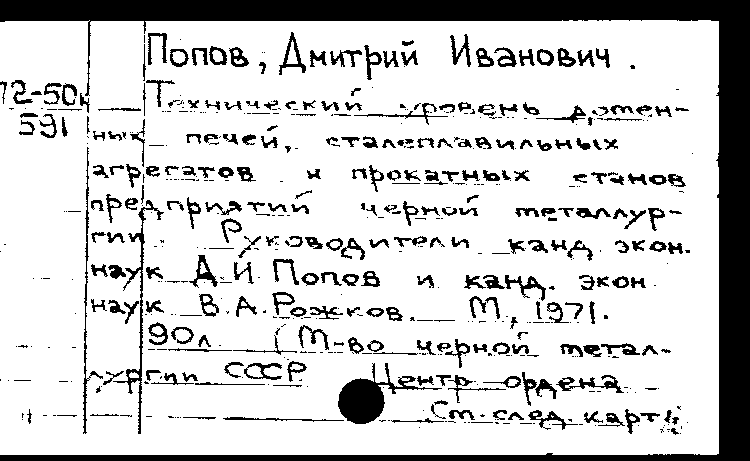 Попов, Дмитрий Иванович.
72-50к
591
Технический уровень домен-
ных печей, сталеплавильных
агрегатов и прокатных станов
предприятий черной металлур-
гии. Руководители канд. экон.
наук Д.И. Попов и канд. экон.
наук В.А. Рожков. М., 1971.
90л. (М-во черной метал-
лургии СССР Центр. ордена
См. след. карт.